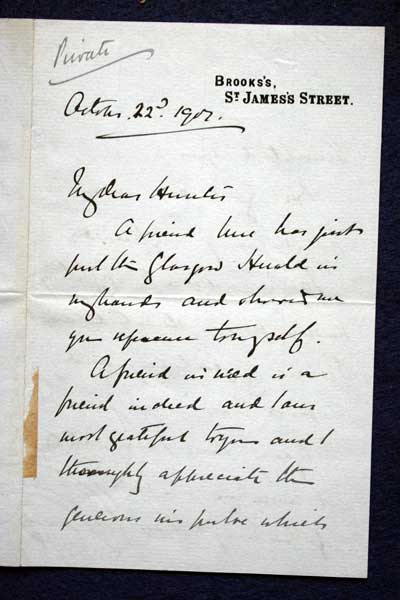 Private
BROOKS'S,
ST JAMES'S STREET.
October 22d 190
My dear Hunter
A friend here has just
put the Glasgow Herald in
my hands and showed me
your reference to myself.
A friend in need is a
friend indeed and I am
most grateful to you and I
thoroughly appreciate the
generous impulse which